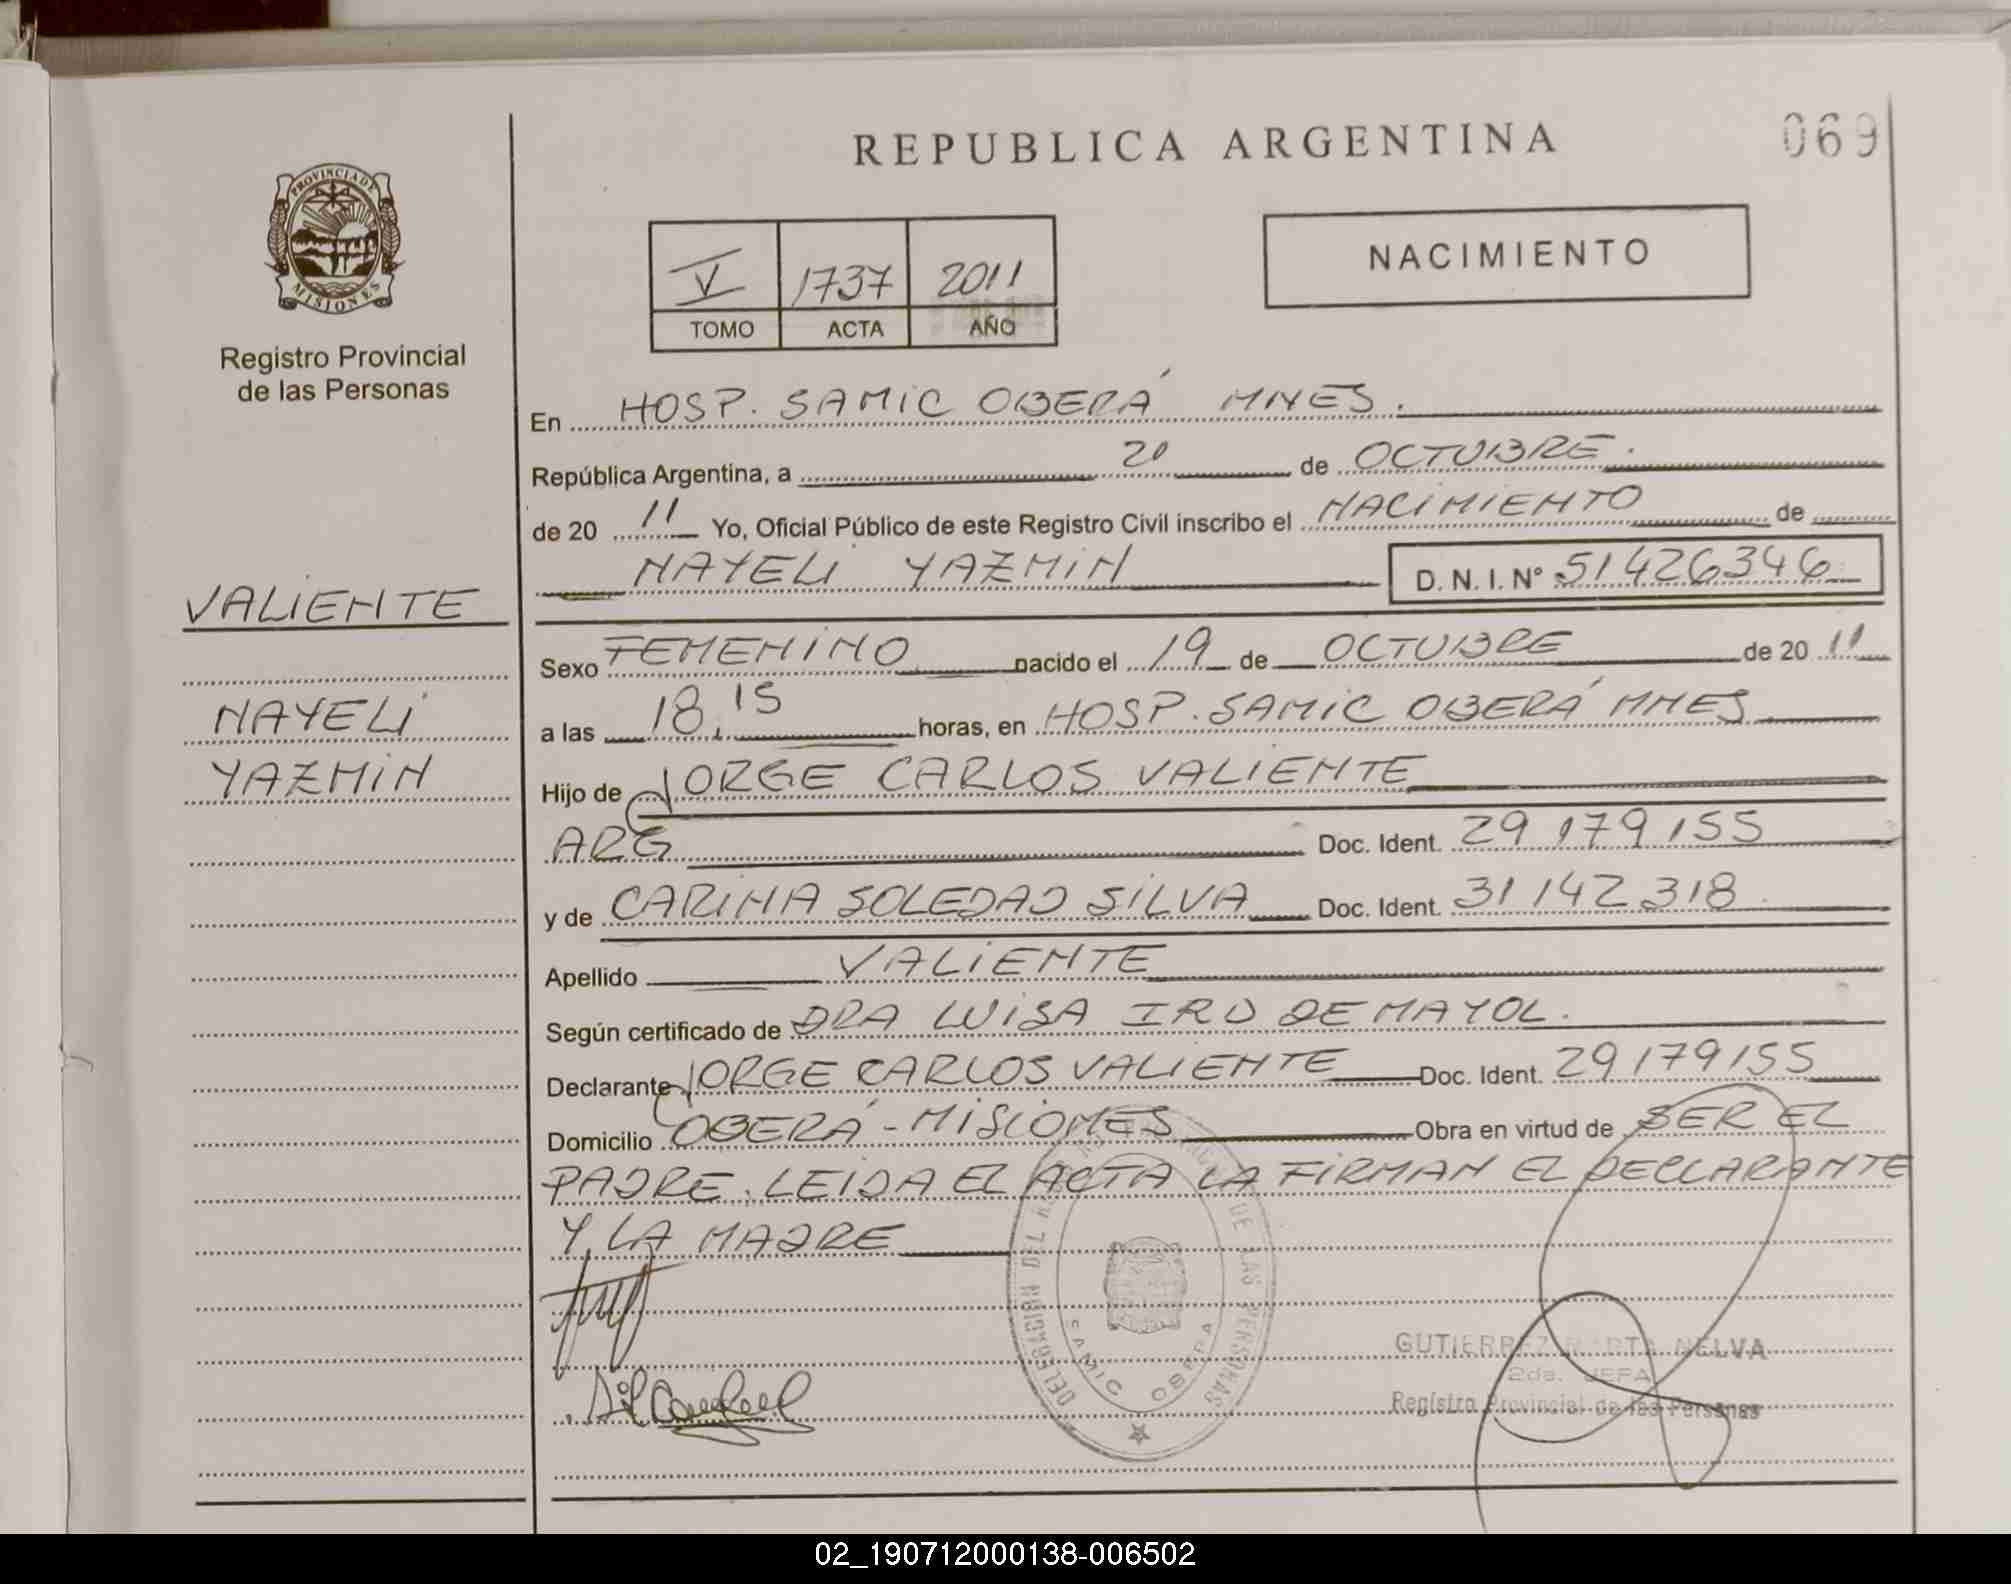 REPUBLICA ARGENTINA
069
PROVINCIA DE
MISIONES
Registro Provincial
de las Personas
V 1737 2011
TOMO ACTA AÑO
NACIMIENTO
En HOSP. SAMIC OBERÁ MNES.
República Argentina, a 20 de OCTUBRE.
de 20 11 Yo, Oficial Público de este Registro Civil inscribo el NACIMIENTO de
NAYELI YAZMIN D. N. I. Nº 51426346
VALIENTE
NAYELI
YAZMIN
Sexo FEMENINO nacido el 19 de OCTUBRE de 20 11
a las 18,15 horas, en HOSP. SAMIC OBERÁ MNES
Hijo de JORGE CARLOS VALIENTE
ARG Doc. Ident. 29179155
y de CARINA SOLEDAD SILVA Doc. Ident. 31142318
Apellido VALIENTE
Según certificado de DRA LUISA IRO DE MAYOL.
Declarante JORGE CARLOS VALIENTE Doc. Ident. 29179155
Domicilio OBERÁ - MISIONES Obra en virtud de SER EL
PADRE. LEIDA EL ACTA LA FIRMAN EL DECLARANTE
Y LA MADRE
DE LAS PERSONAS
SAMIC OBERA
GUTIERREZ MARTA NELVA
2da. JEFA
Registro Provincial de las Personas
02_190712000138-006502